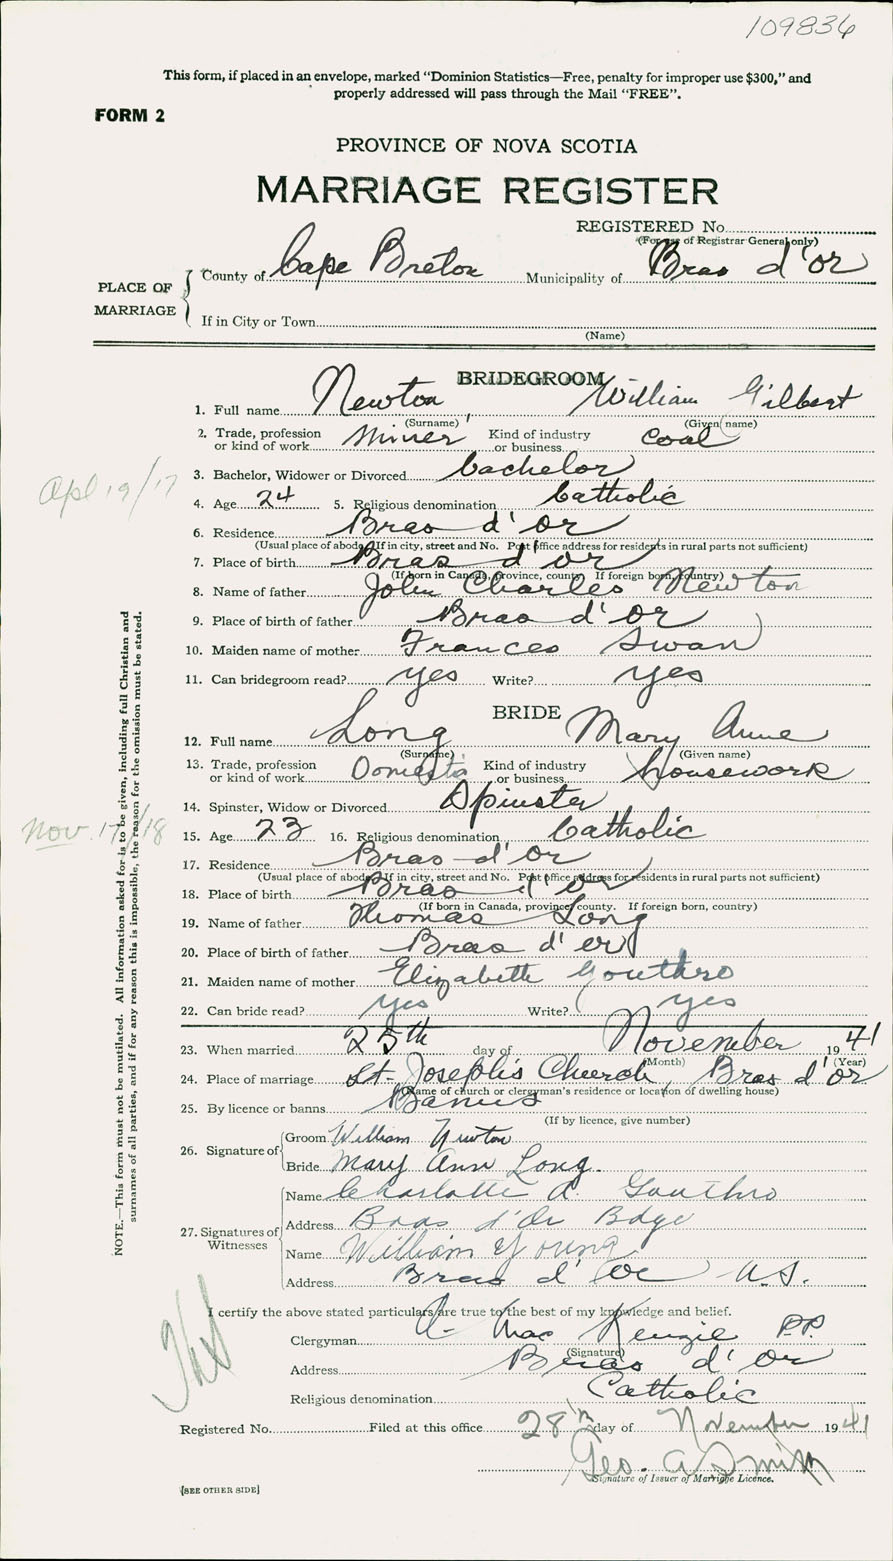 109836
This form, if placed in an envelope, marked "Dominion Statistics—Free, penalty for improper use $300," and
properly addressed will pass through the Mail "FREE".
FORM 2
PROVINCE OF NOVA SCOTIA
MARRIAGE REGISTER
REGISTERED No.
(For use of Registrar General only)
PLACE OF MARRIAGE
County of Cape Breton Municipality of Bras d'or
If in City or Town
(Name)
BRIDEGROOM
1. Full name Newton, William Gilbert
(Surname) (Given name)
2. Trade, profession or kind of work Miner Kind of industry or business Coal
3. Bachelor, Widower or Divorced bachelor
Apl 19/17
4. Age 24 5. Religious denomination Catholic
6. Residence Bras d'or
(Usual place of abode. If in city, street and No. Post office address for residents in rural parts not sufficient)
7. Place of birth Bras d'or
(If born in Canada, province, county. If foreign born, country)
8. Name of father John Charles Newton
9. Place of birth of father Bras d'or
10. Maiden name of mother Frances Swan
11. Can bridegroom read? yes Write? yes
BRIDE
12. Full name Long Mary Anne
(Surname) (Given name)
13. Trade, profession or kind of work Domestic Kind of industry or business housework
14. Spinster, Widow or Divorced Spinster
Nov. 17/18
15. Age 23 16. Religious denomination Catholic
17. Residence Bras d'or
(Usual place of abode. If in city, street and No. Post office address for residents in rural parts not sufficient)
18. Place of birth Bras d'or
(If born in Canada, province, county. If foreign born, country)
19. Name of father Thomas Long
20. Place of birth of father Bras d'or
21. Maiden name of mother Elizabeth Gouthro
22. Can bride read? yes Write? yes
23. When married 25th day of November 1941
(Month) (Year)
24. Place of marriage St. Joseph's Church, Bras d'or
(Name of church or clergyman's residence or location of dwelling house)
25. By licence or banns Banns
(If by licence, give number)
26. Signature of
Groom William Newton
Bride Mary Ann Long.
27. Signatures of Witnesses
Name Charlotte A. Gouthro
Address Bras d'Or Bdge
Name William Young
Address Bras d'or N.S.
I certify the above stated particulars are true to the best of my knowledge and belief.
Clergyman A. MacKenzie P.P.
(Signature)
Address Bras d'or
Religious denomination Catholic
Registered No. Filed at this office 28th day of November 1941
Geo. A Smith
Signature of Issuer of Marriage Licence.
[SEE OTHER SIDE]
NOTE.—This form must not be mutilated. All information asked for is to be given, including full Christian and
surnames of all parties, and if for any reason this is impossible, the reason for the omission must be stated.